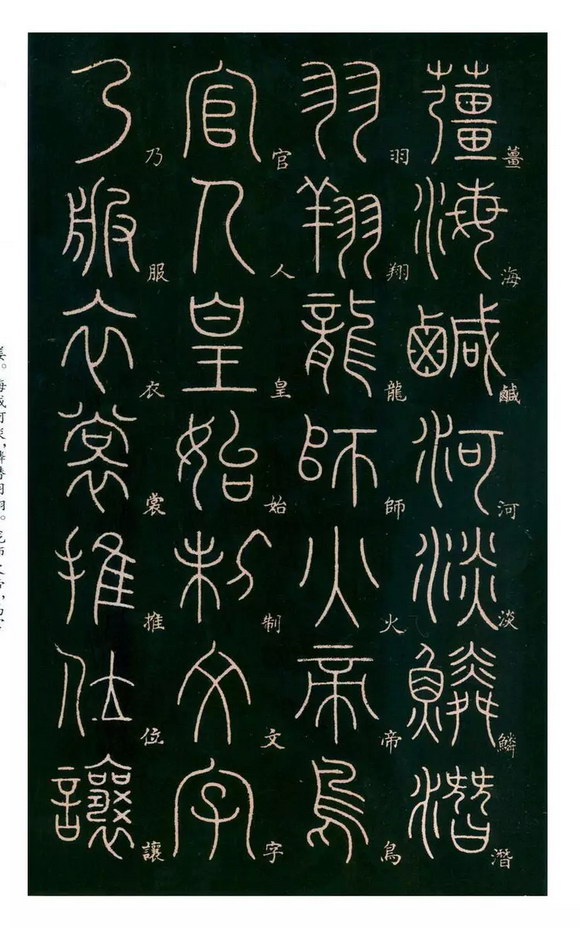 薑海鹹河淡鱗潛
薑海鹹河淡鱗潛
羽翔龍師火帝鳥
羽翔龍師火帝鳥
官人皇始制文字
官人皇始制文字
乃服衣裳推位讓
乃服衣裳推位讓